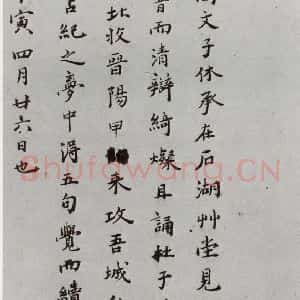 文子休承在石湖艸堂見
音而清辯綺燦且誦杜子
北收晉陽甲來攻吾城
紀之夢中得五句覺而續
寅四月廿六日也
Shufawang.CN